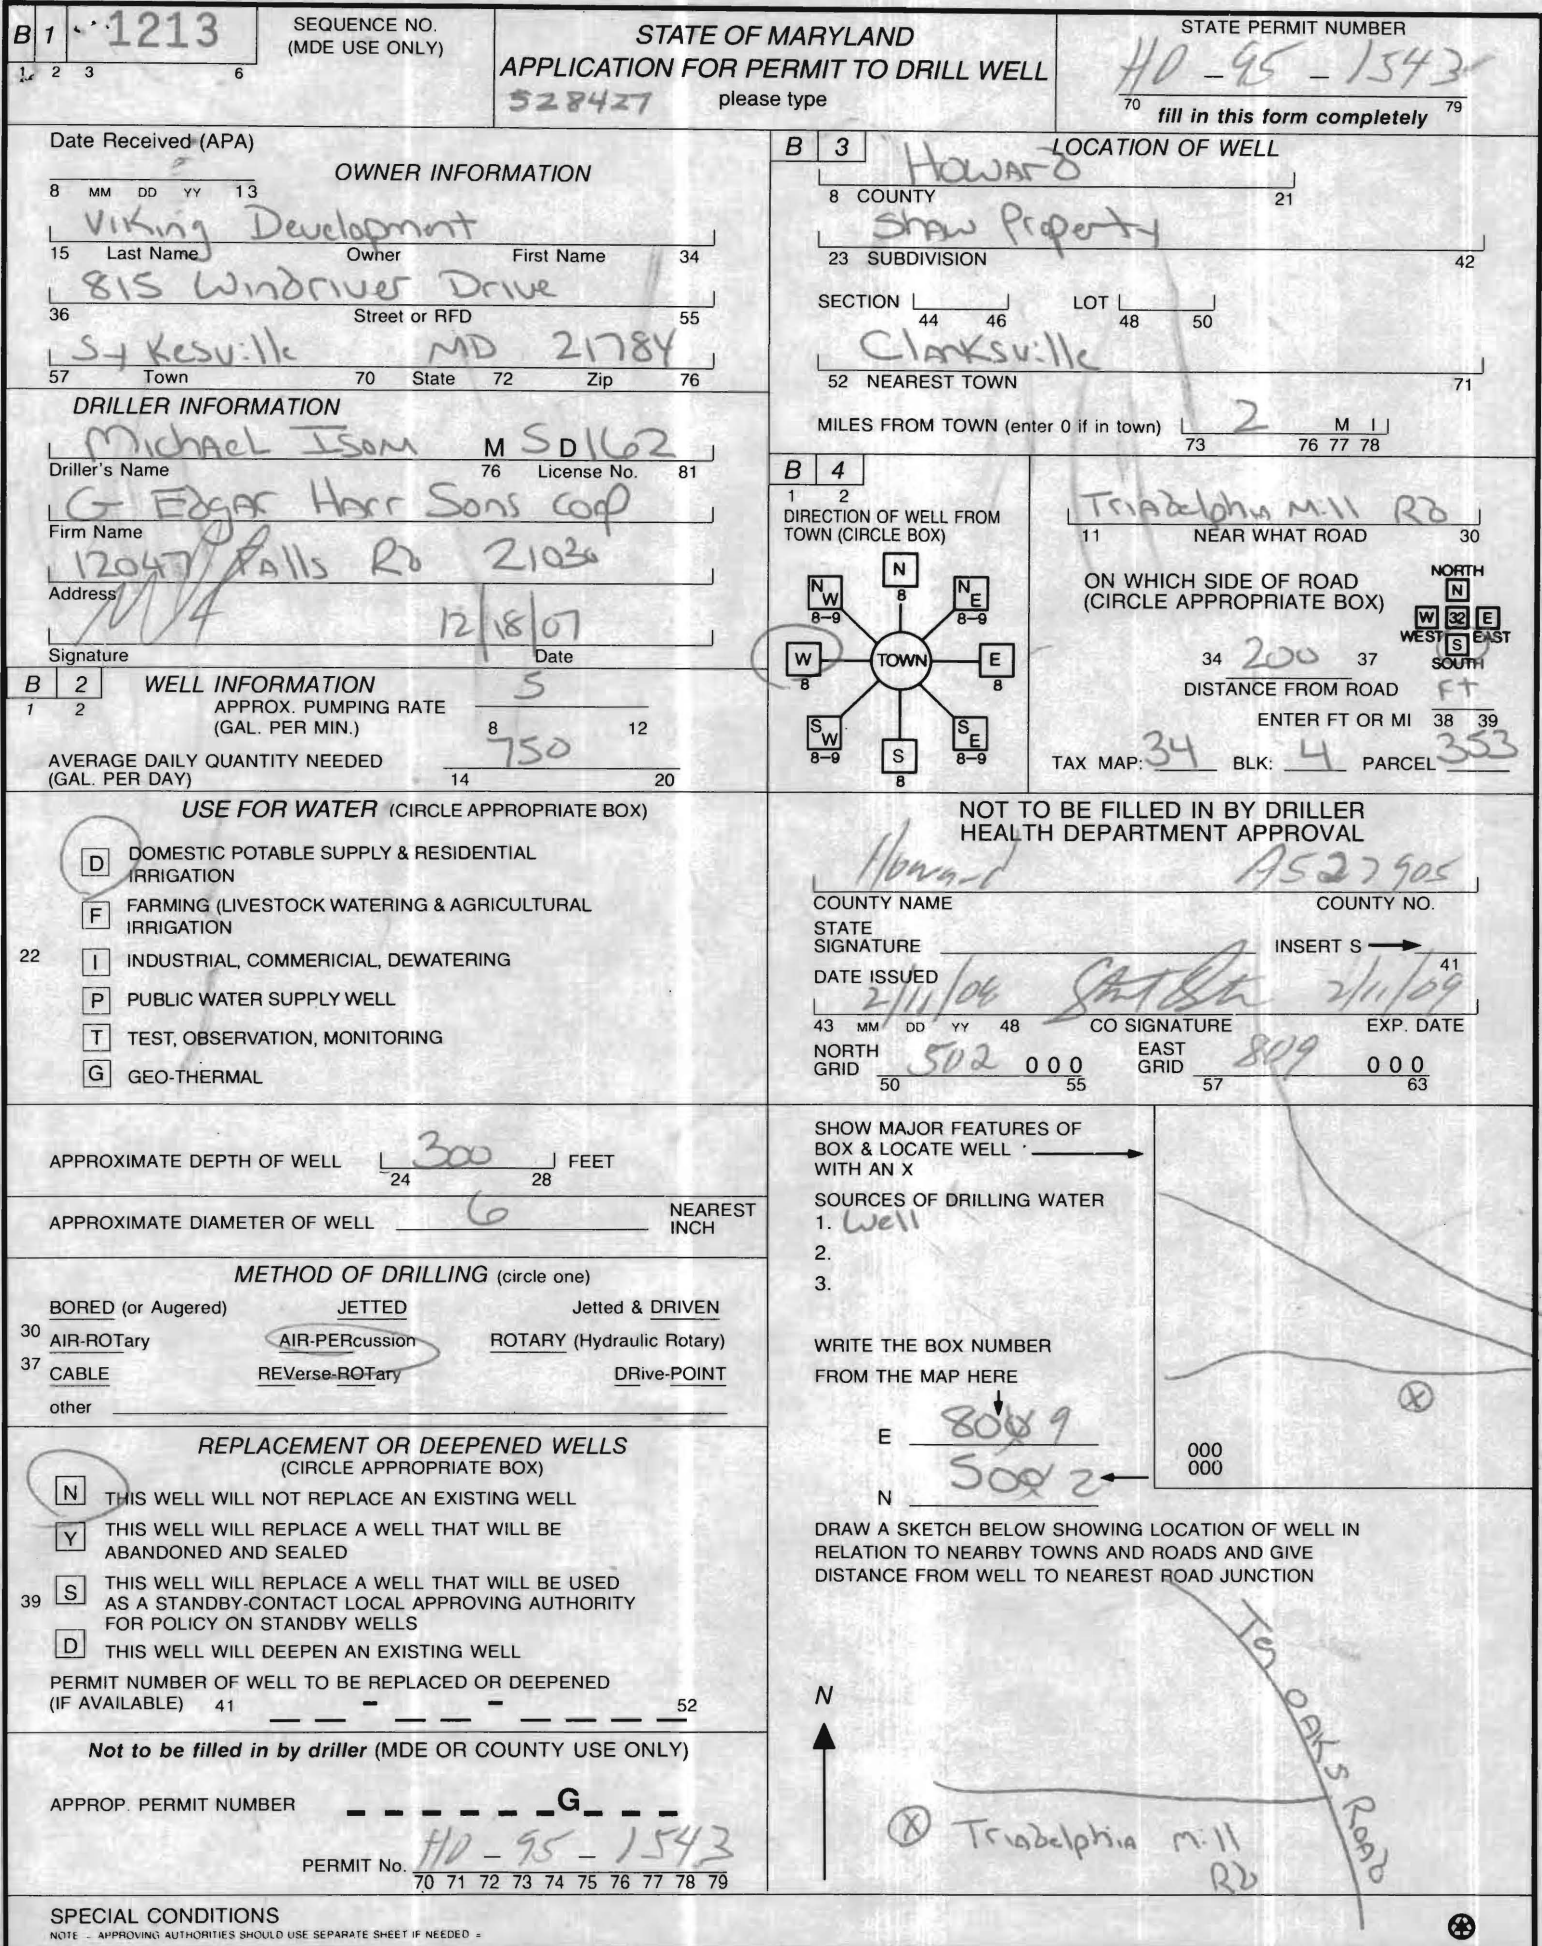 B 1 1213
1 2 3 6
SEQUENCE NO.
(MDE USE ONLY)
STATE OF MARYLAND
APPLICATION FOR PERMIT TO DRILL WELL
528427 please type
STATE PERMIT NUMBER
HO - 95 - 1543
70 79
fill in this form completely
Date Received (APA)
8 MM DD YY 13
OWNER INFORMATION
Viking Development
15 Last Name Owner First Name 34
815 Windriver Drive
36 Street or RFD 55
Sykesville MD 21784
57 Town 70 State 72 Zip 76
DRILLER INFORMATION
Michael Isom M S D 162
Driller's Name 76 License No. 81
G Edgar Harr Sons Corp
Firm Name
12047 Falls Rd 21030
Address
12/18/07
Signature Date
B 2 WELL INFORMATION
1 2
APPROX. PUMPING RATE
(GAL. PER MIN.) 5
8 12
AVERAGE DAILY QUANTITY NEEDED
(GAL. PER DAY) 750
14 20
USE FOR WATER (CIRCLE APPROPRIATE BOX)
D DOMESTIC POTABLE SUPPLY & RESIDENTIAL
IRRIGATION
F FARMING (LIVESTOCK WATERING & AGRICULTURAL
IRRIGATION
22 I INDUSTRIAL, COMMERICIAL, DEWATERING
P PUBLIC WATER SUPPLY WELL
T TEST, OBSERVATION, MONITORING
G GEO-THERMAL
APPROXIMATE DEPTH OF WELL 300 FEET
24 28
APPROXIMATE DIAMETER OF WELL 6 NEAREST
INCH
METHOD OF DRILLING (circle one)
BORED (or Augered) JETTED Jetted & DRIVEN
30 AIR-ROTary AIR-PERcussion ROTARY (Hydraulic Rotary)
37 CABLE REVerse-ROTary DRive-POINT
other
REPLACEMENT OR DEEPENED WELLS
(CIRCLE APPROPRIATE BOX)
N THIS WELL WILL NOT REPLACE AN EXISTING WELL
Y THIS WELL WILL REPLACE A WELL THAT WILL BE
ABANDONED AND SEALED
39 S THIS WELL WILL REPLACE A WELL THAT WILL BE USED
AS A STANDBY-CONTACT LOCAL APPROVING AUTHORITY
FOR POLICY ON STANDBY WELLS
D THIS WELL WILL DEEPEN AN EXISTING WELL
PERMIT NUMBER OF WELL TO BE REPLACED OR DEEPENED
(IF AVAILABLE) 41 - - 52
Not to be filled in by driller (MDE OR COUNTY USE ONLY)
APPROP. PERMIT NUMBER G
PERMIT No. HO - 95 - 1543
70 71 72 73 74 75 76 77 78 79
SPECIAL CONDITIONS
NOTE - APPROVING AUTHORITIES SHOULD USE SEPARATE SHEET IF NEEDED =
B 3 LOCATION OF WELL
Howard
8 COUNTY 21
Shaw Property
23 SUBDIVISION 42
SECTION LOT
44 46 48 50
Clarksville
52 NEAREST TOWN 71
MILES FROM TOWN (enter 0 if in town) 2 M I
73 76 77 78
B 4
1 2
DIRECTION OF WELL FROM
TOWN (CIRCLE BOX)
N
8
NW NE
8-9 8-9
W TOWN E
8 8
SW SE
8-9 8-9
S
8
Triadelphia Mill Rd
11 NEAR WHAT ROAD 30
ON WHICH SIDE OF ROAD
(CIRCLE APPROPRIATE BOX)
NORTH
N
W 32 E
WEST EAST
S
SOUTH
34 200 37
DISTANCE FROM ROAD FT
ENTER FT OR MI 38 39
TAX MAP: 34 BLK: 4 PARCEL 353
NOT TO BE FILLED IN BY DRILLER
HEALTH DEPARTMENT APPROVAL
Howard A527905
COUNTY NAME COUNTY NO.
STATE
SIGNATURE INSERT S
41
DATE ISSUED
2/11/08 2/11/09
43 MM DD YY 48 CO SIGNATURE EXP. DATE
NORTH
GRID 502 000
50 55
EAST
GRID 809 000
57 63
SHOW MAJOR FEATURES OF
BOX & LOCATE WELL
WITH AN X
SOURCES OF DRILLING WATER
1. Well
2.
3.
WRITE THE BOX NUMBER
FROM THE MAP HERE
E 809
N 502
X
000
000
DRAW A SKETCH BELOW SHOWING LOCATION OF WELL IN
RELATION TO NEARBY TOWNS AND ROADS AND GIVE
DISTANCE FROM WELL TO NEAREST ROAD JUNCTION
Oaks Road
N
X Triadelphia Mill
Rd